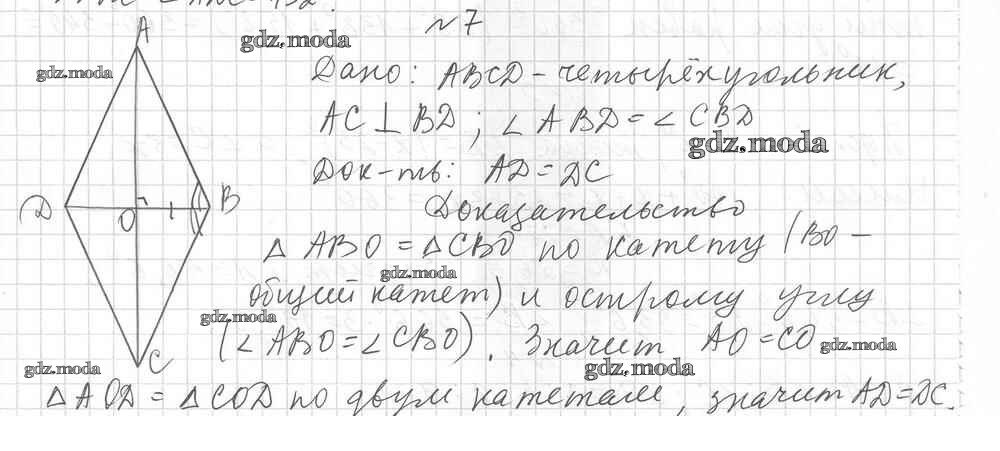 №7
A
gdz.moda
gdz.moda
Дано: ABCD - четырёхугольник,
AC ⊥ BD ; ∠ ABD = ∠ CBD
gdz.moda
Док-ть: AD = DC
D O B
Доказательство
△ ABO = △ CBO по катету (BO -
gdz.moda
общий катет) и острому углу
gdz.moda
(∠ ABO = ∠ CBO). Значит AO = CO
gdz.moda
C
gdz.moda
gdz.moda
△ AOD = △ COD по двум катетам, значит AD = DC.